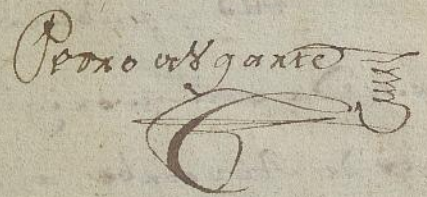 Pedro de gante